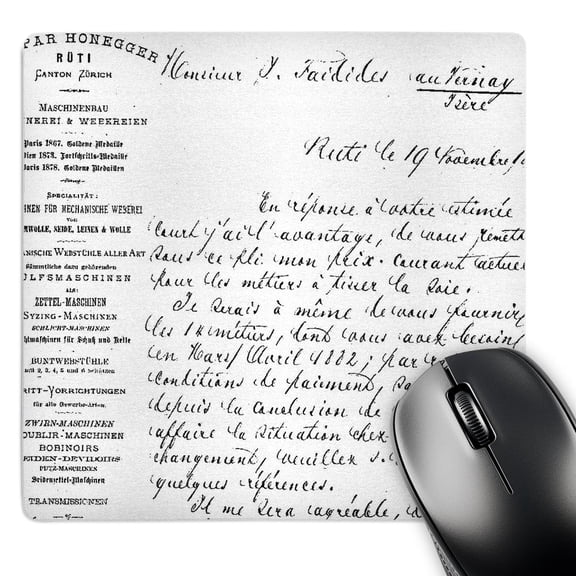 PAR HONEGGER
RÜTI
CANTON ZÜRICH
MASCHINENBAU
NEREI & WEBEREIEN
Paris 1867. Goldene Medaille
ien 1873. Fortschritts-Medaille
aris 1878. Goldene Medaillen
SPECIALITÄT:
NEN FÜR MECHANISCHE WEBEREI
von
MWOLLE, SEIDE, LEINEN & WOLLE
NISCHE WEBSTÜHLE ALLER ART
Sämmtliche dazu gehörenden
ÜLFSMASCHINEN
als:
ZETTEL-MASCHINEN
SYZING-MASCHINEN
SCHLICHT-MASCHINEN
hlmaschinen für Schuss und Kette
BUNTWEBSTÜHLE
mit 2, 3, 4, 5 und 6 Schützen
RITT-VORRICHTUNGEN
für alle Gewebe-Arten.
ZWIRN-MASCHINEN
DOUBLIR-MASCHINEN
BOBINOIRS
SEIDEN-DEVIDOIRS
PUTZ-MASCHINEN
Seidenzettel-Maschinen
TRANSMISSIONEN
Monsieur J. Faidides au Vernay
Isère
Ruti le 19 Novembre 1
En réponse à votre estimée
court j'ai l'avantage, de vous remett
sous ce pli mon prix-courant actue
pour les métiers à tisser la soie.
Je serais à même de vous fournir
les 14 métiers, dont vous avez besoin
en Mars/Avril 1882; par
conditions de paiment,
depuis la conclusion de
affaire la situation chez
changement, veuillez s.
quelques références.
Il me sera agréable, d